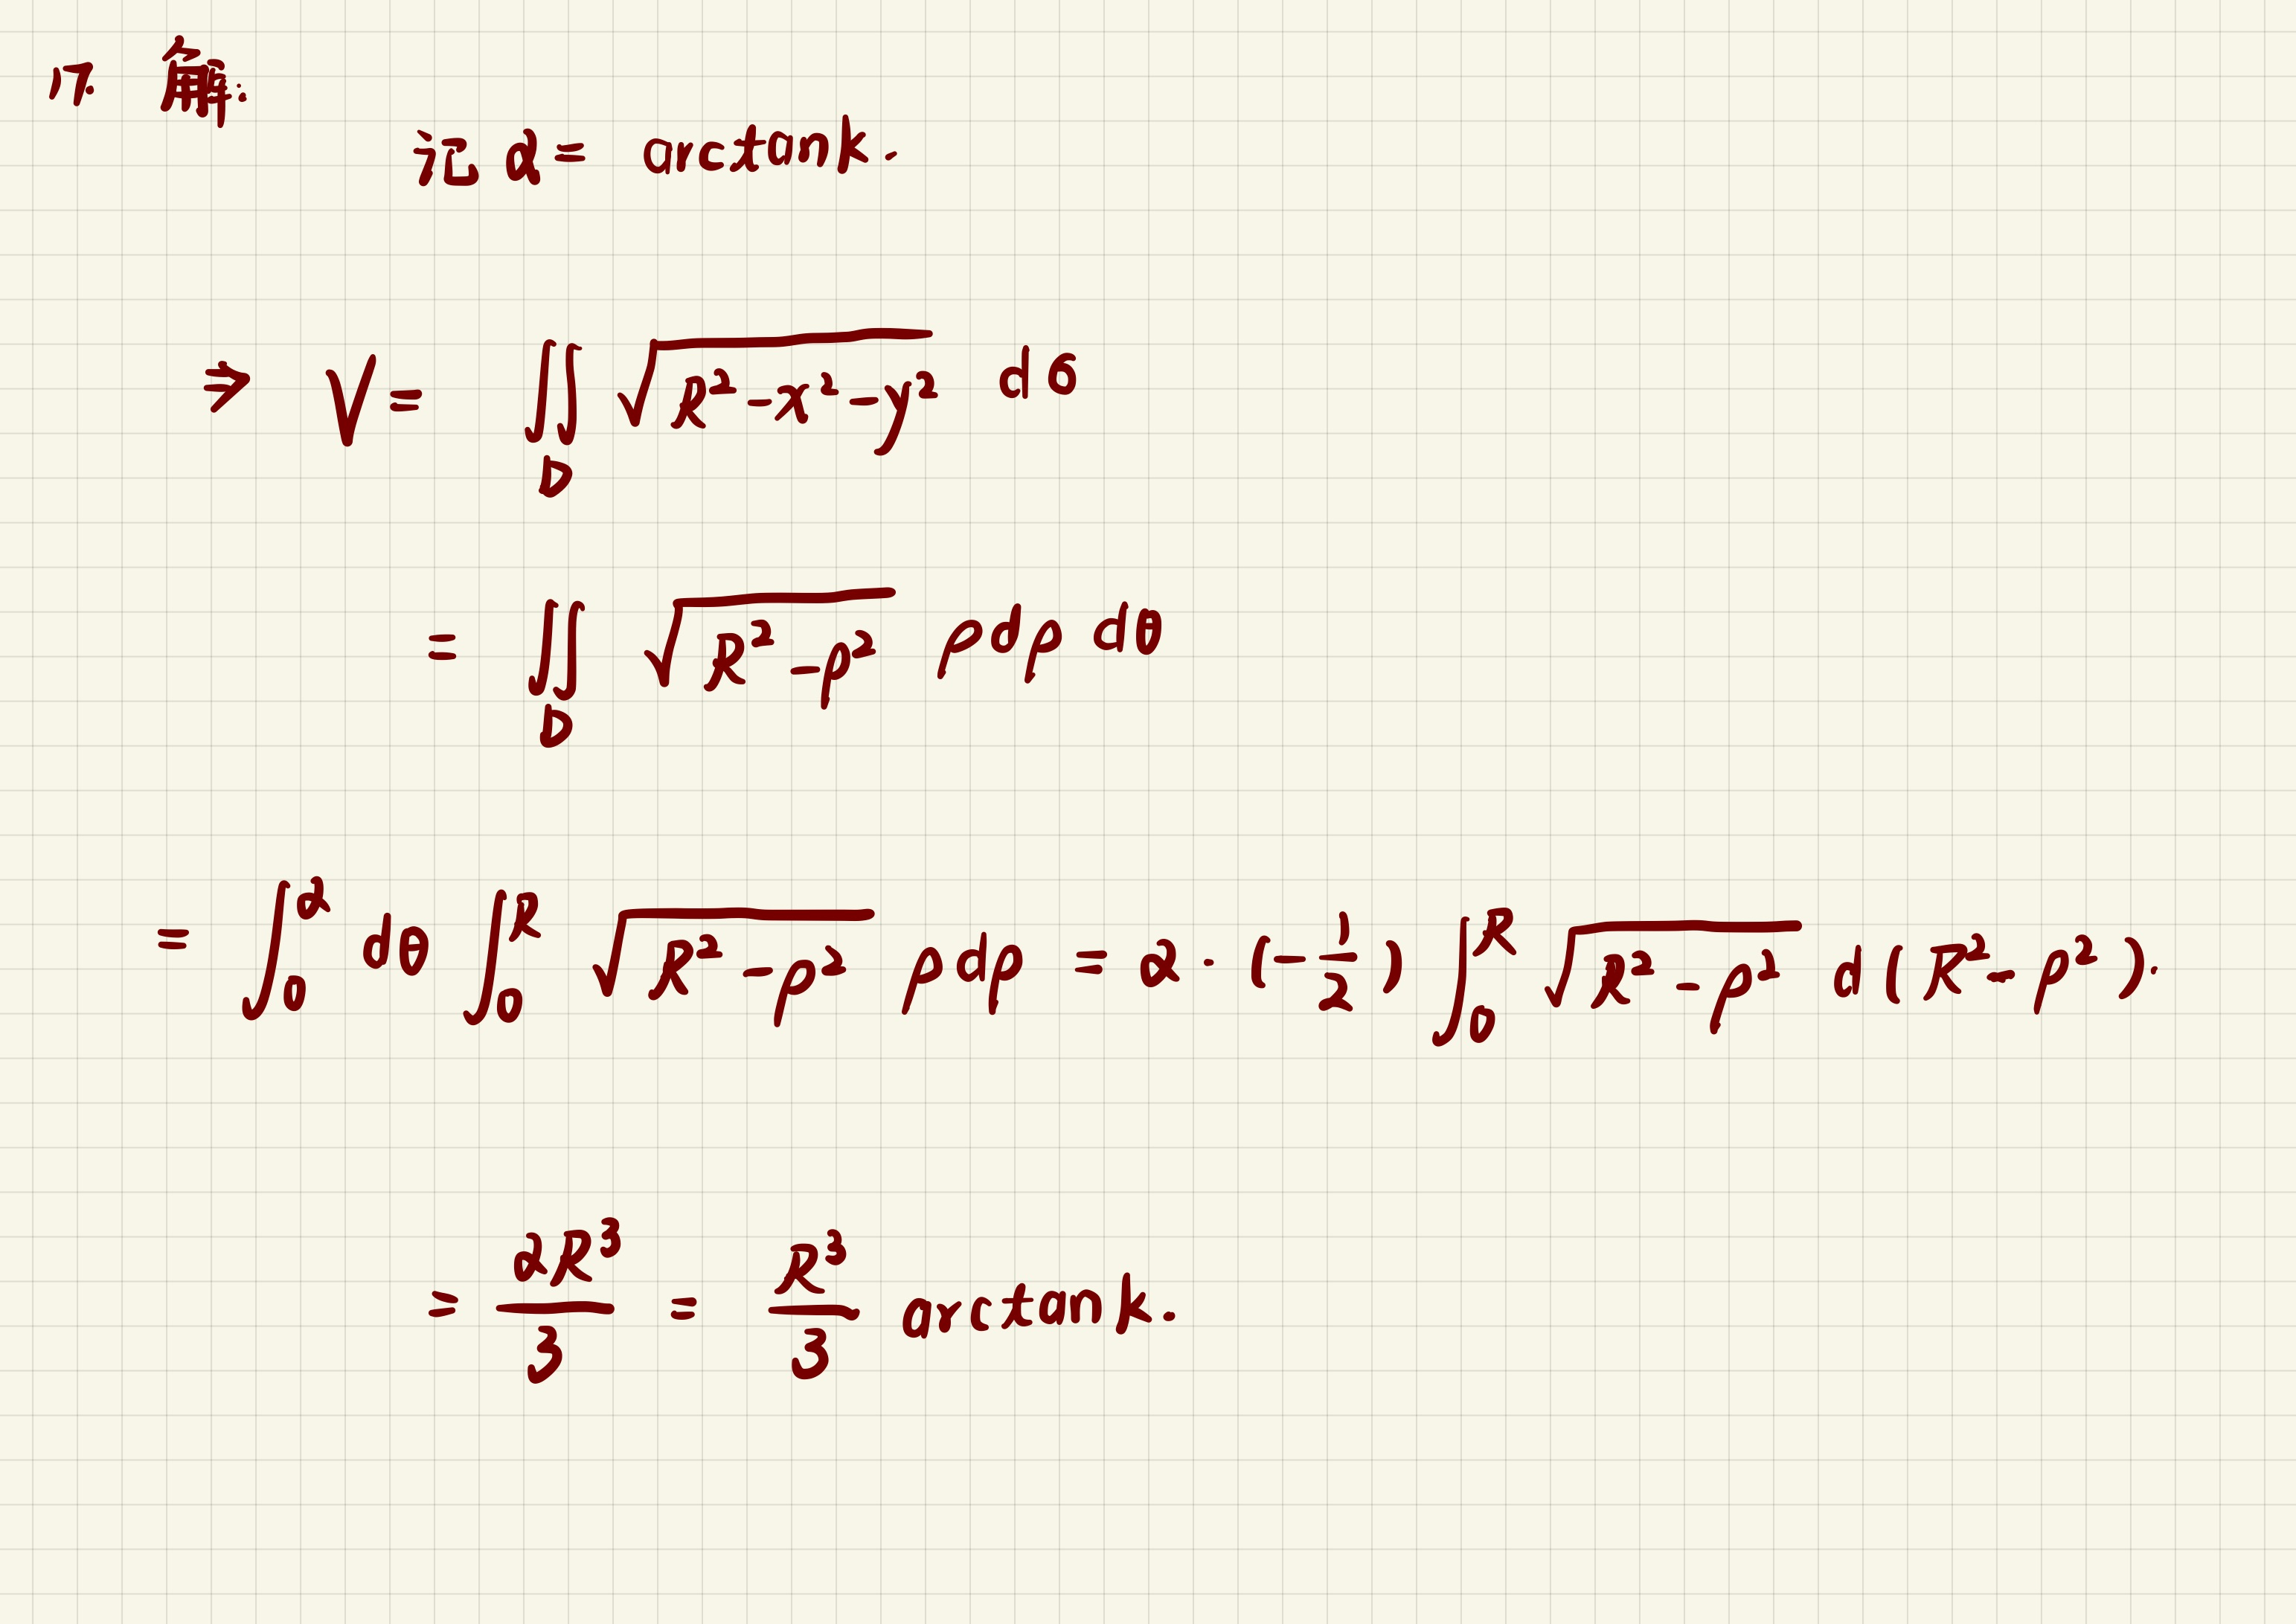 17. 解:
记 α = arctank.
⇒ V = ∬_D √(R²-x²-y²) dσ
= ∬_D √(R²-ρ²) ρdρ dθ
= ∫₀^α dθ ∫₀^R √(R²-ρ²) ρdρ = α · (-1/2) ∫₀^R √(R²-ρ²) d(R²-ρ²).
= αR³/3 = R³/3 arctank.